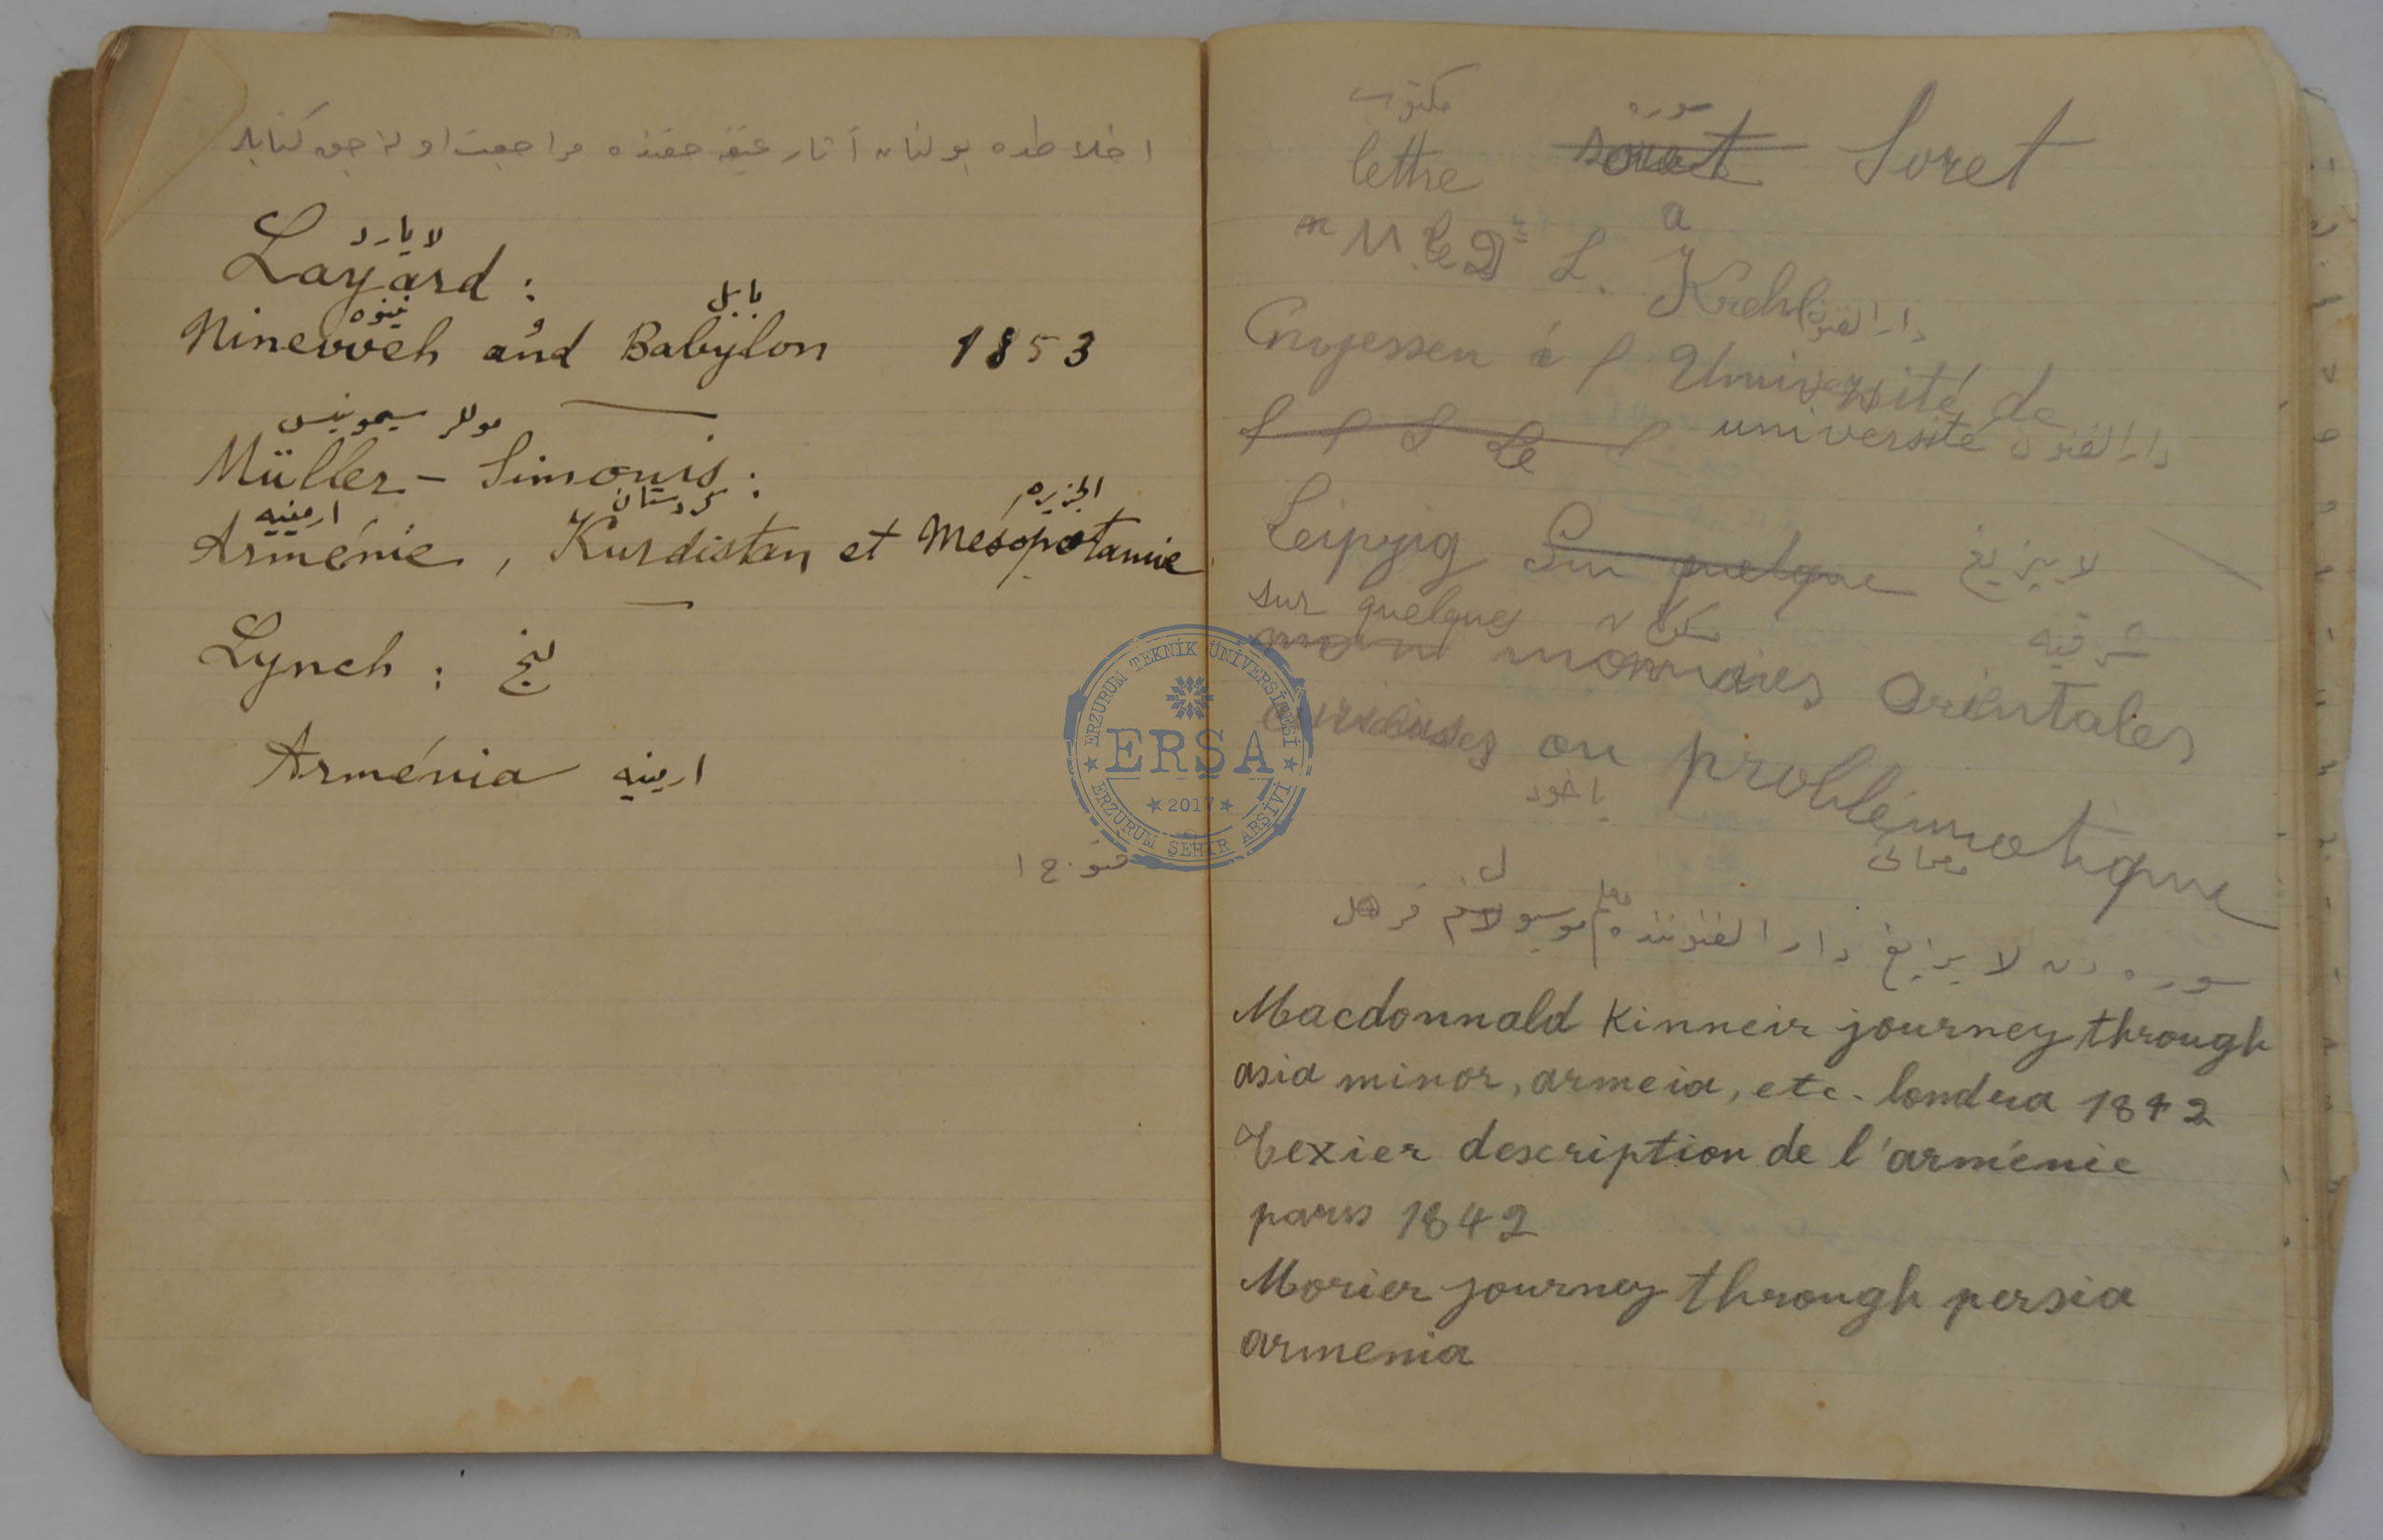 اخلاطده بولنان آثار عتیقه حقنده مراجعت اولنه‌جق كتابلر
لایارد
Layard :
نینوه و بابل
Ninevveh and Babylon 1853
موللر سیمونیس
Müller - Simonis :
ارمنیه كردستان الجزیره
Arménie , Kurdistan et Mésopotamie
Lynch : لینج
Arménia ارمینیه
مكتوب سوره
lettre soret Soret
a
M. le Dr L. Krehl
دارالفنون
à l Université de
université دارالفنون
Leipzig Sur quelque لایپزیغ
sur quelques
شرقیه
monnaies orientales
curieuses ou problématique
یاخود
سوره دن لایپزیغ دارالفنوننده معلم موسیو ل قرهل
Macdonnald Kinneir journey through
asia minor, armeia, etc. londra 1842
Texier description de l'arménie
paris 1842
Morier journey through persia
armenia
ERZURUM TEKNİK ÜNİVERSİTESİ
ERŞA
2017
ERZURUM ŞEHİR ARŞİVİ